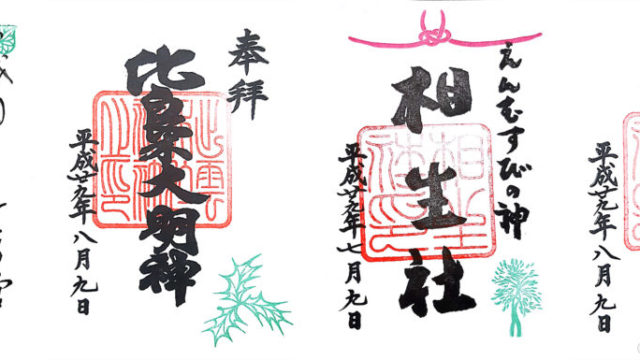 平成廿九年八月九日
えんむすびの神
相生社
平成廿九年七月九日
奉拝
比良木大明神
平成廿九年八月九日